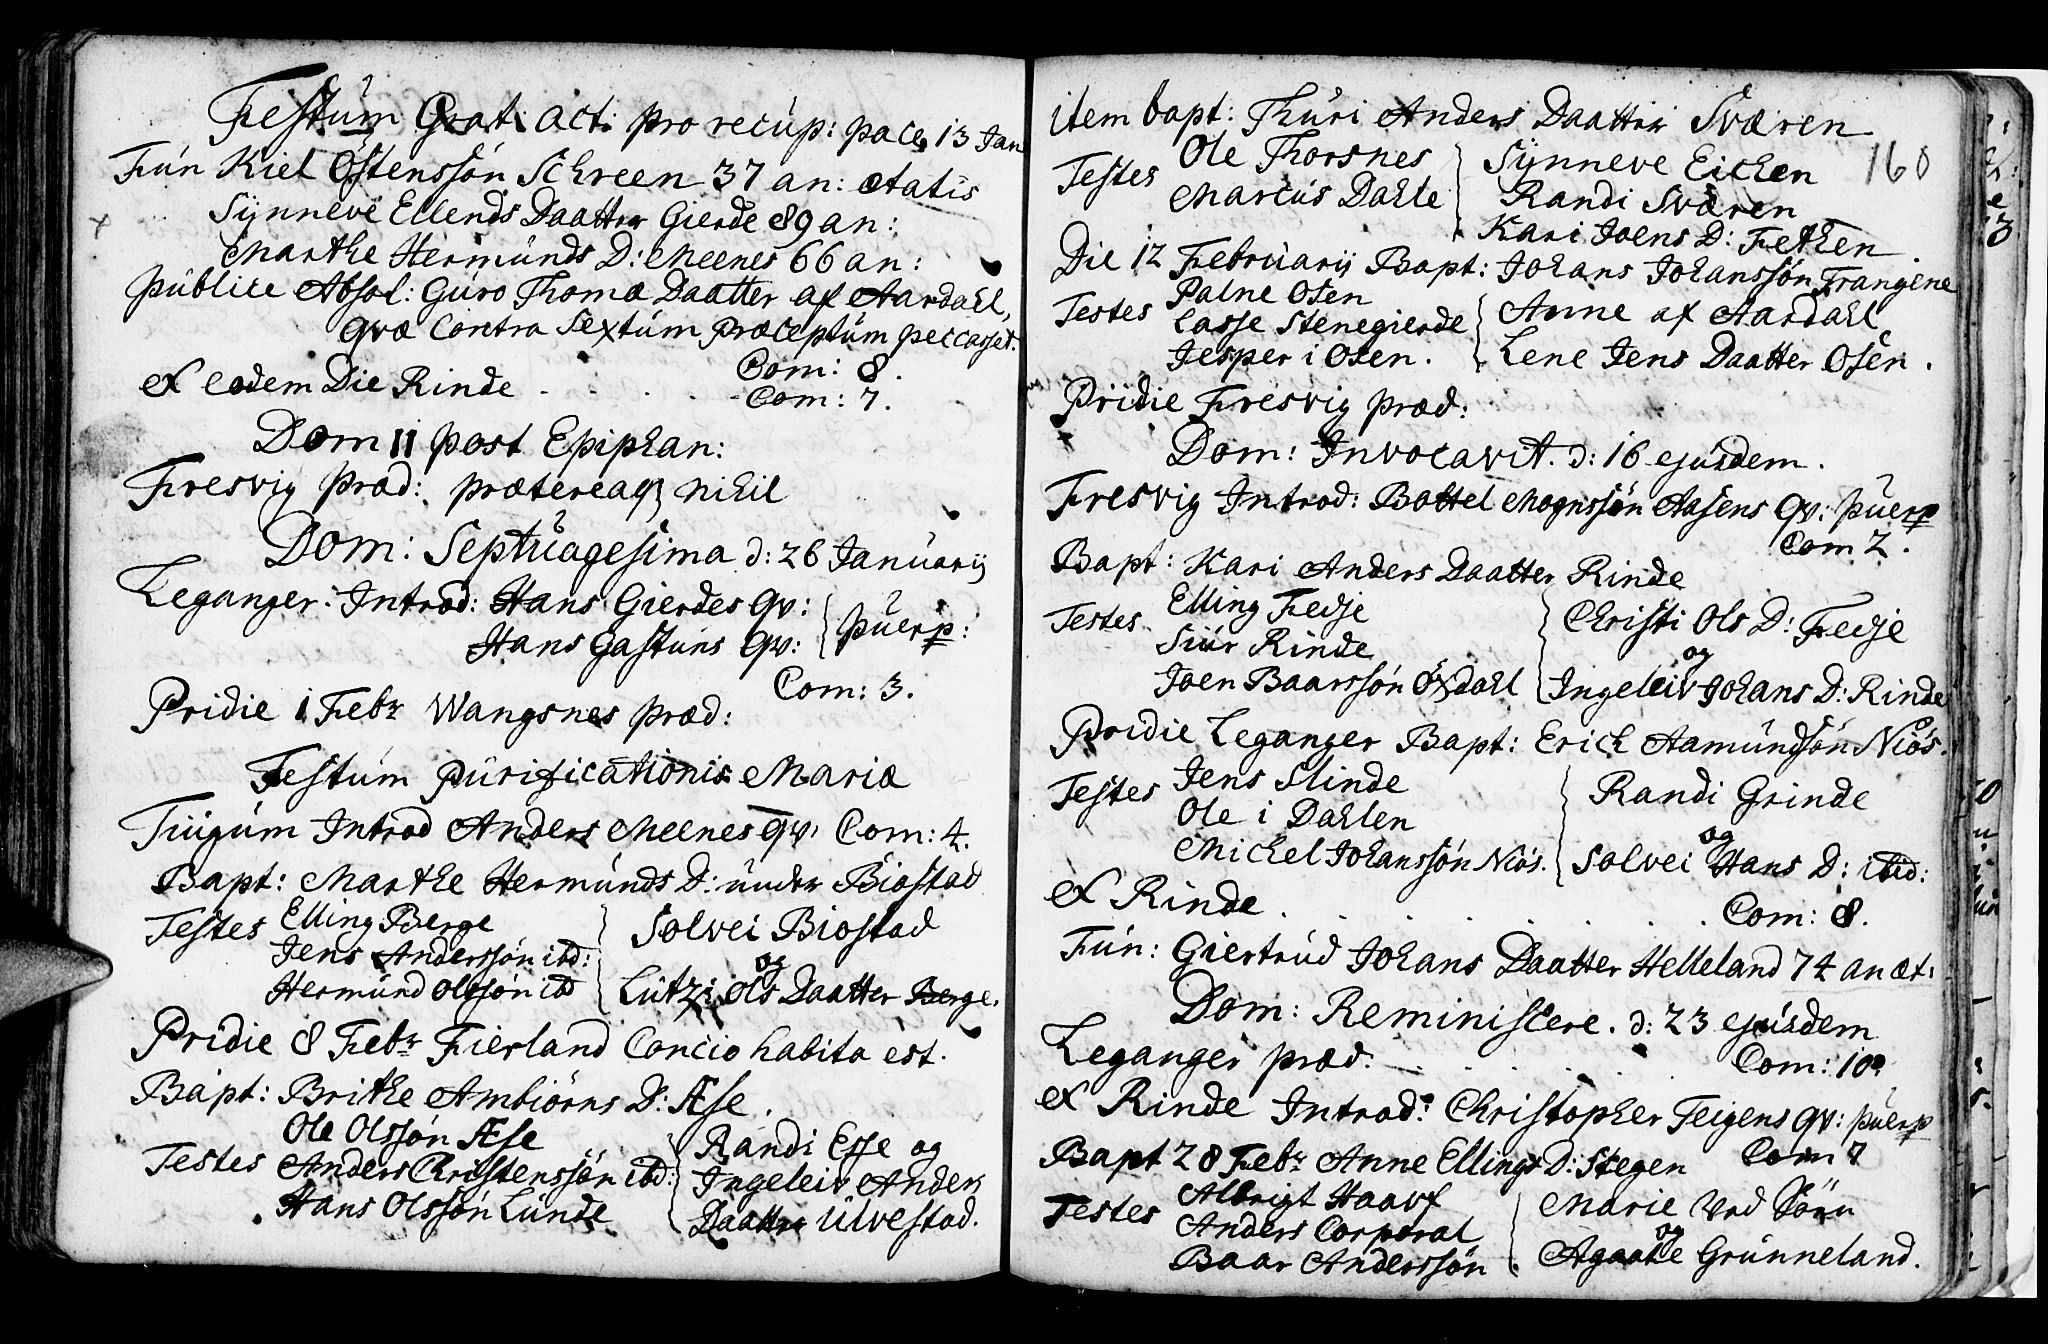 Festum Grat: act: pro recup: pace, 13 Jan
Fun Kiel Östenssön Schreen 37 an: ætatis
Synneve Ellends Daatter Gierde 89 an:
Marthe Hermunds D: Meenes 66 an:
publice Absol: Guro Thomæ Daatter af Aardahl,
qvæ contra Sextum præceptum peccasset.
Com: 8.
& eodem Die Rinde . . . . . Com: 7.
Dom 11 post Epiphan:
Fresvig præd: prætereaq nihil
Dom: Septuagesima d: 26 Januarij
Leganger: Introd: Hans Gierdes qv:
Hans Gastuns qv: } puerp:
Com: 3.
Pridie 1 Febr Wangsnes præd:
Festum Purificationis Mariæ
Tiugum Introd Anders Meenes qv: Com: 4.
Bapt: Marthe Hermunds D: under Biostad
Testes Elling Berge
Jens Anderssön ibd:
Hermund Olssön ibd
Solvei Biostad
og
Lutzi Ols Daatter Berge.
Pridie 8 Febr Fierland Concio habita est.
Bapt: Brithe Ambiörns D: Æse.
Testes Ole Olssön Æse
Anders Christenssön ibd:
Hans Olssön Lunde
Randi Esse og
Ingeleiv Anders
Daatter Ulvestad.
item bapt: Thuri Anders Daatter Sværen
160
Testes Ole Thorsnes
Marcus Dahle
Synneve Eichen
Randi Sværen
Kari Joens D: Fethen
Die 12 Februarij Bapt: Johans Johanssön Frangene
Testes Palne Osen
Lasse Stenegierde
Jesper i Osen.
Anne af Aardahl
Lene Jens Daatter Osen.
Pridie Fresvig præd:
Dom: Invocavit. d: 16 ejusdem.
Fresvig Introd: Bottel Mognssön Aasens qv: puerp
Com 2.
Bapt: Kari Anders Daatter Rinde
Testes Elling Fedje
Siur Rinde
Joen Baarssön Öxdahl
Christi Ols D: Fedje
og
Ingeleiv Johans D: Rinde
Pridie Leganger Bapt: Erich Aamundssön Niös.
Testes Jens Slinde
Ole i Dahlen
Michel Johanssön Niös.
Randi Grinde
og
Solvei Hans D: ibid:
& Rinde . . . . . . . Com: 8.
Fun: Giertrud Johans Daatter Helleland 74 an æt:
Dom: Reminiscere. d: 23 ejusdem
Leganger præd. . . . . . Com: 10.
& Rinde Introd: Christopher Teigens qv: puerp
Com 7
Bapt 28 Febr Anne Ellings D: Stegen
Testes Albrigt Haavf
Anders Corporal
Baar Anderssön
Marie Ved Söen
og
Agaate Grunneland.